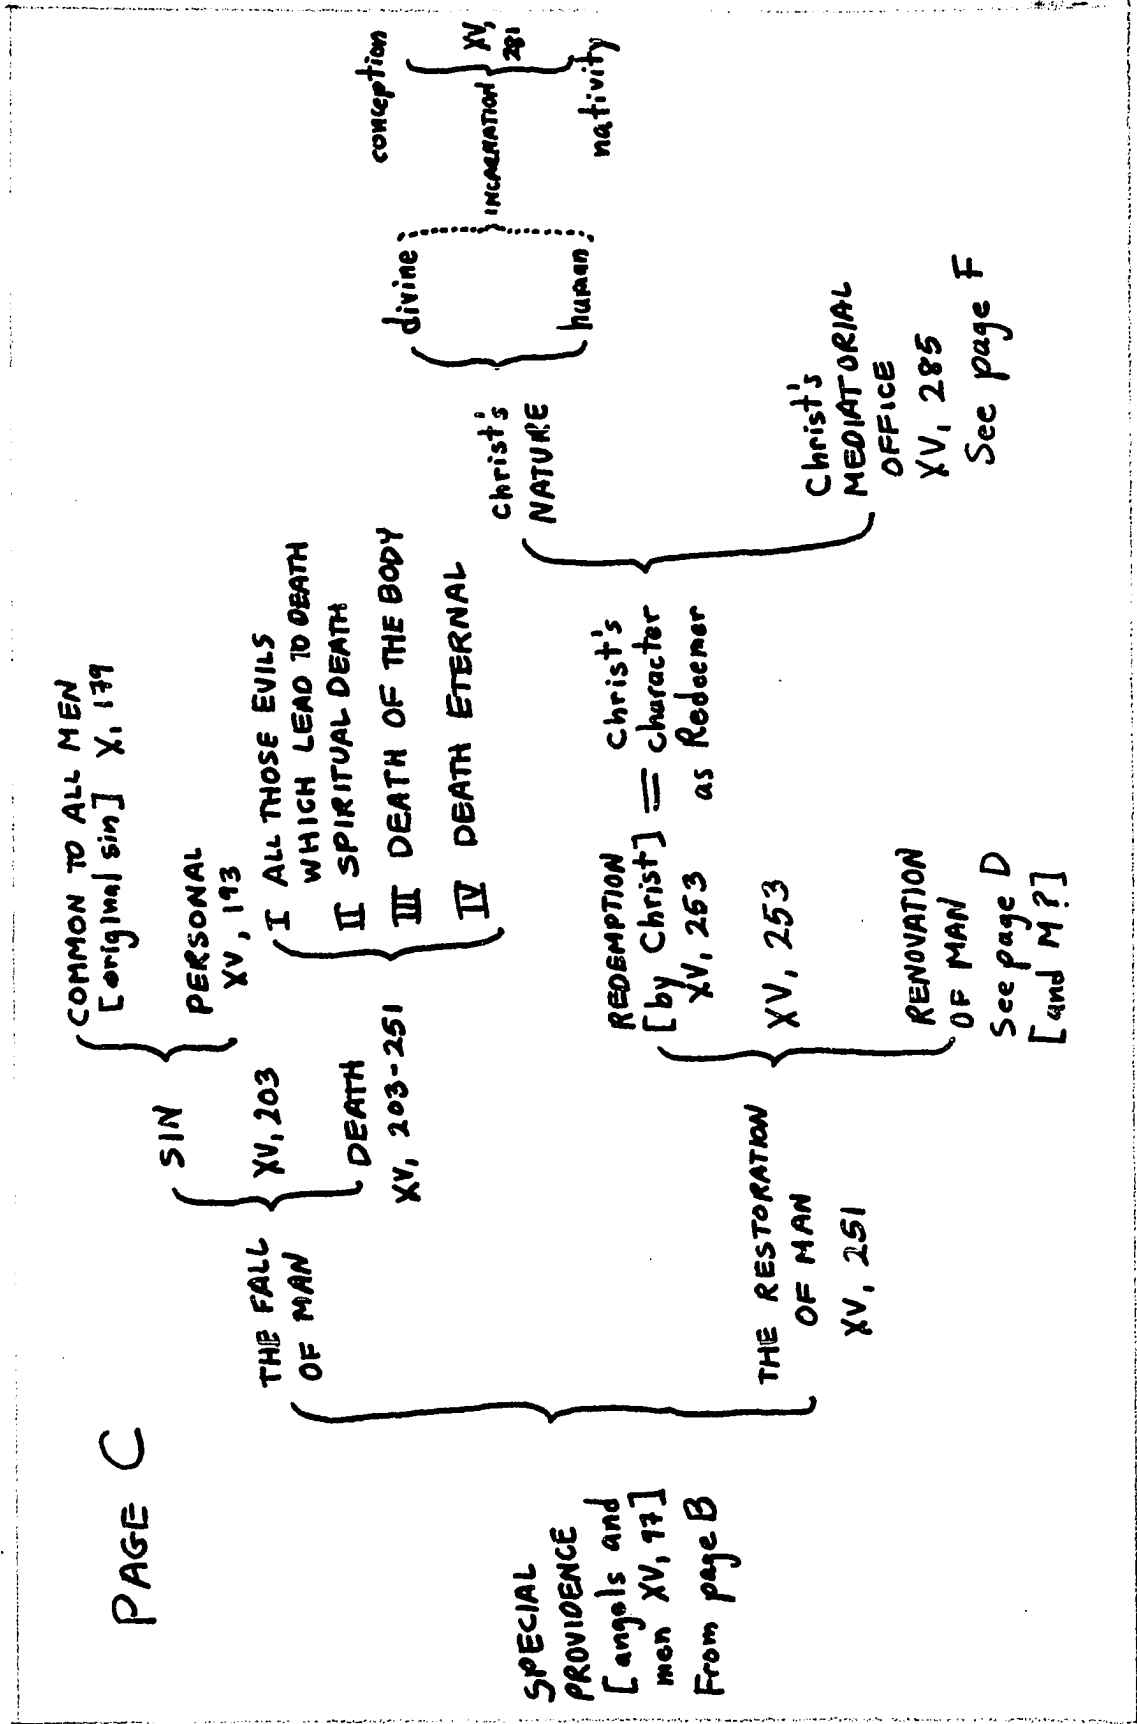 PAGE C
SPECIAL
PROVIDENCE
[angels and
men XV, 97]
From page B
THE FALL
OF MAN
SIN
XV, 203
DEATH
XV, 203-251
COMMON TO ALL MEN
[original sin] X, 179
PERSONAL
XV, 193
I ALL THOSE EVILS
WHICH LEAD TO DEATH
II SPIRITUAL DEATH
III DEATH OF THE BODY
IV DEATH ETERNAL
THE RESTORATION
OF MAN
XV, 251
REDEMPTION
[by Christ] =
XV, 253
XV, 253
RENOVATION
OF MAN
See page D
[and M?]
Christ's
character
as Redeemer
Christ's
NATURE
divine
human
INCARNATION
conception
XV,
281
nativity
Christ's
MEDIATORIAL
OFFICE
XV, 285
See page F